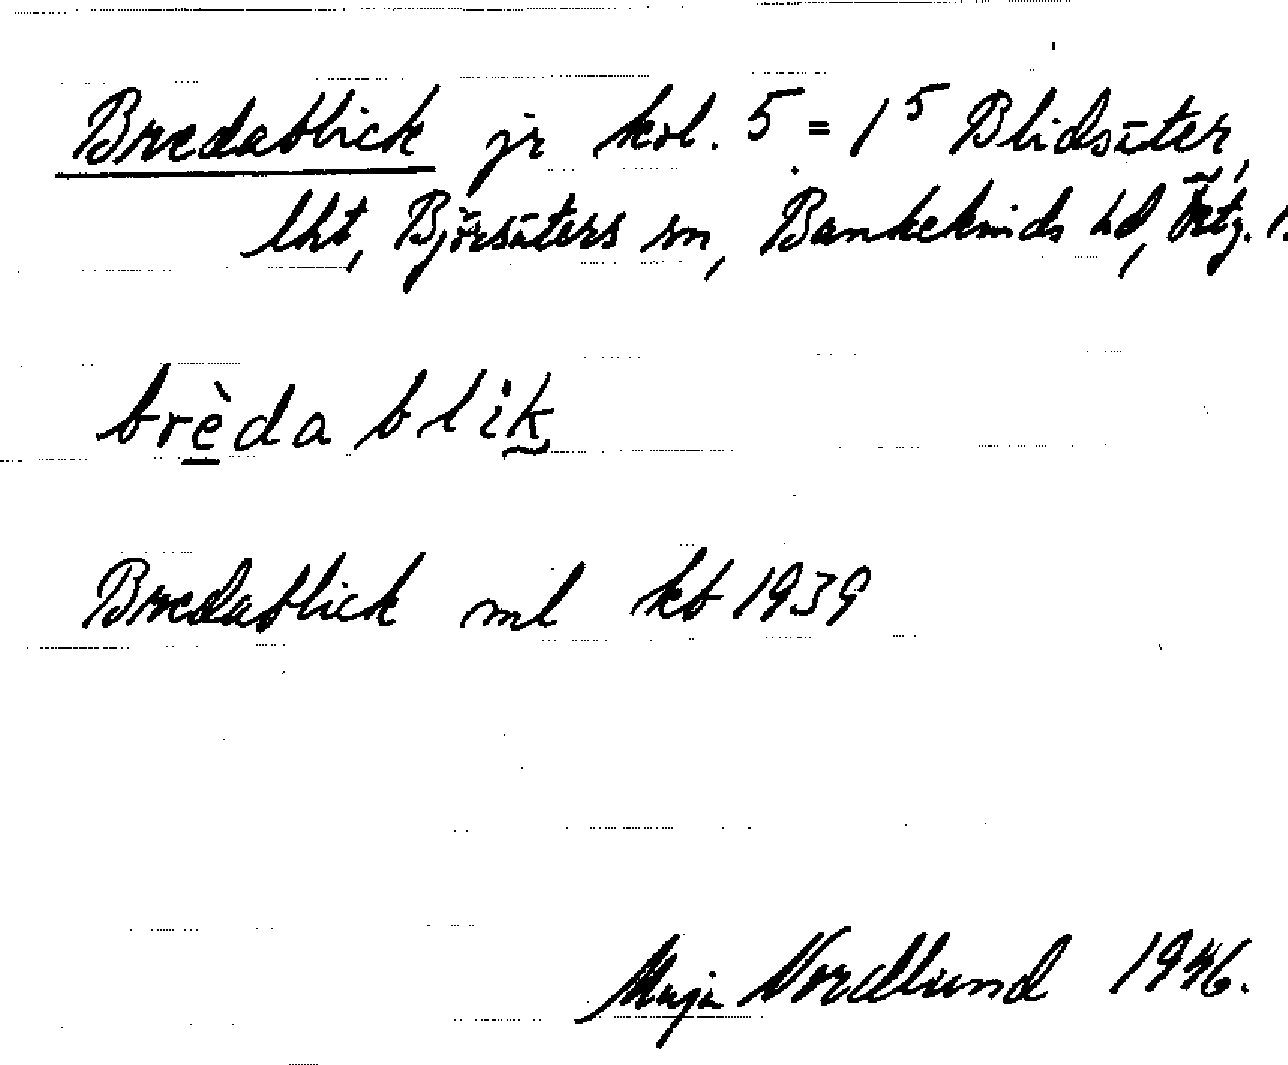 Bredablick jr kol. 5 = 1⁵ Blidsäter,
lht, Björsäters sn, Bankekinds hd, Östg. l
brèda blik
Bredablick ml kb 1939
Maja Nordlund 1946.